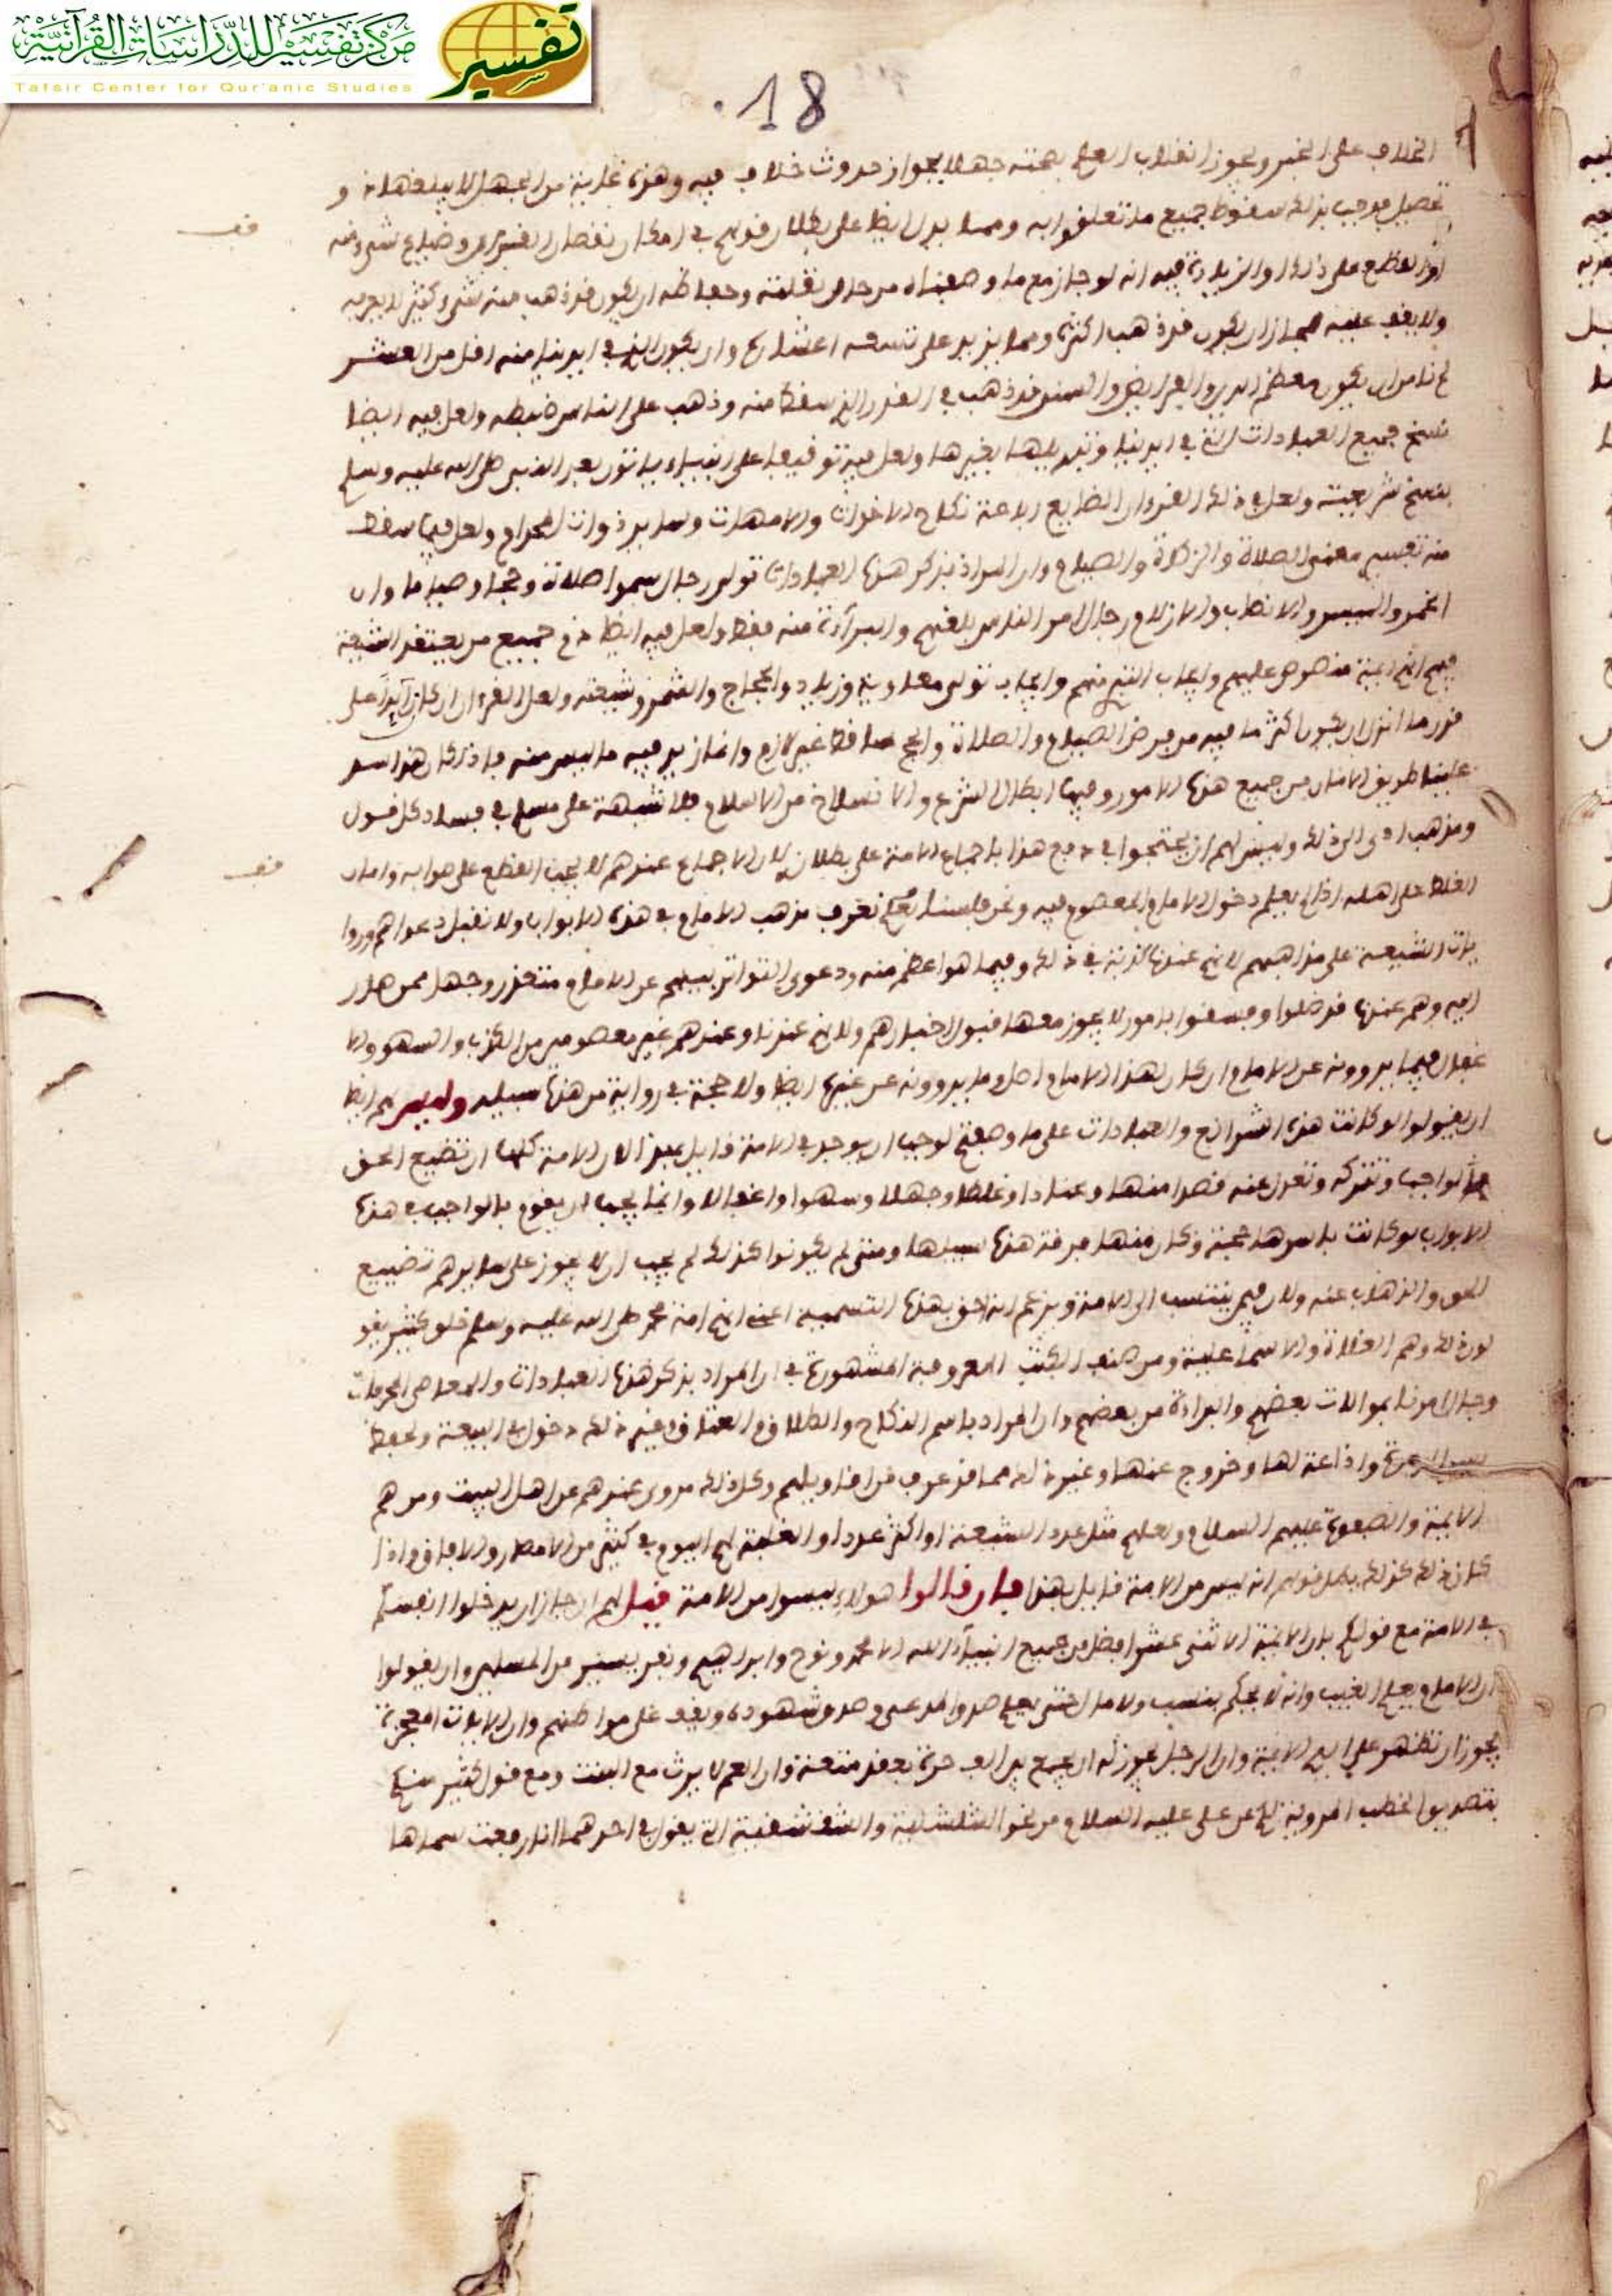 مركز تفسير للدراسات القرآنية
تفسير
Tafsir Center for Qur'anic Studies
18
الخلاف على الخبر ويجوز انقلاب العلم بصحته جهلا بجواز حدوث خلاف فيه وهذه غاية من الجهل لا يبلغها ذو
تحصيل فوجب بذلك سقوط جميع ما تعلقوا به ومما يدل ايضا على بطلان قولهم في امكان نقصان القرءان وضياع شيء منه
قف
او القطع على ذلك او الزيادة فيه انه لو جاز مع ما وصفناه من حال نقلته وحفاظه ان يكون قد ذهب منه شيء كثير لا يعرفه
ولا يقف عليه لجاز ان يكون قد ذهب اكثره ومما يزيد على تسعة اعشاره وان يكون الذي في ايدينا منه اقل من العشر
لم نامن ان يكون معظم الدين والفرايض والسنن قد ذهب في القدر الذي سقط منه وذهب على الناس ضبطه ولعل فيه ايضا
نسخ جميع العبادات التي في ايدينا وتبديلها بغيرها ولعل فيه توقيفا على انبياء ياتون بعد النبي صلى الله عليه وسلم
بنسخ شريعته ولعل في ذلك القرءان الضايع اباحة نكاح الاخوات والامهات وساير ذوات المحرام ولعل فيما سقط
منه تفسير معنى الصلاة والزكاة والصيام وان المراد بذكر هذه العبادات تولي رجال سموا صلاة وحجا وصياما وان
الخمر والميسر والانصاب والازلام رجال امر الناس بلعنهم والبرآءة منه فقط ولعل فيه ايضا ذم جميع من يعتقد الشيعة
فيهم انهم ايمة منصوص عليهم وايجاب التبري منهم وايجاب تولي معاوية وزياد والحجاج والشمر وشيعته ولعل القرءان ان كان زايدا على
قدر ما انزل ان يكون اكثر ما فيه من فرض الصيام والصلاة والحج ساقط غير لازم وانما زيد فيه ما ليس منه فاذا كان هذا يسد
علينا طريق الامان من جميع هذه الامور وفيها ابطال الشرع والانسلاخ من الاسلام فلا شبهة على مسلم في فساد كل قول
ومذهب ادى الى ذلك وليس لهم ان يحتجوا في دفع هذا باجماع الامة على بطلانه لان الاجماع عندهم لا يجب القطع على صوابه وامان
قف
الغلط على اهله اذا لم يعلم دخول الامام المعصوم فيه ونحن فلسنا نعرف مذهب الامام في هذه الابواب ولا نقبل دعواهم وروا
يات الشيعة على مذاهبهم لانهم عندنا كذبة في ذلك وفيما هو اعظم منه ودعوى التواتر بينهم عن الامام متعذر وجهها ممن صار
اليه وهم عندنا قد ضلوا وفسقوا بامور لا يجوز معها قبول اخبارهم ولانهم عندنا وعندهم غير معصومين من الكذب والسهو والا
غفال فيما يروونه عن الامام ان كان لهذا الامام اصل وما يروونه عن غيره ايضا ولا حجة في رواية من هذه سبيله وليس لهم ايضا
ان يقولوا لو كانت هذه الشرائع والعبادات على ما وصفتم لوجب ان يوجد في الامة قايل بهذا لان الامة كلها ان تضيع الحق
الواجب وتتركه وتعدل عنه قصدا منها وعنادا وغلطا وجهلا وسهوا واغفالا وانما يجب ان يقوم بالواجب في هذه
الابواب لو كانت باسرها حجة وكل منها فرقة هذه سبيلها ومتى لم يكونوا كذلك لم يجب ان لا يجوز على سايرهم تضييع
الحق والذهاب عنه ولان فيمن ينتسب الى الامة ويزعم انه احق بهذه التسمية اعني انهم امة محمد صلى الله عليه وسلم خلق كثير يقو
لون ذلك وهم الغلاة والاسماعلية ومن صنف الكتب المعروفة المشهورة في ان المراد بذكر هذه العبادات والمعاصي المحرمات
رجال امرنا بموالات بعضهم والبراءة من بعضهم وان المراد باسم النكاح والطلاق والعتاق وغير ذلك دخول في البيعة وحفظ
لسر الدعوة واذاعة لها وخروج عنها وغير ذلك مما قد عرف من اقاويلهم وكل ذلك مروي عندهم عن اهل البيت ومن هم
الايمة والصفوة عليهم السلام ولعلهم مثل عدد الشيعة او اكثر عددا والغلبة لهم اليوم في كثير من الامصار والافاق واذا
كان ذلك كذلك بطل قولهم انه ليس من الامة قايل بهذا فان قالوا هولاء ليسوا من الامة قيل لهم ان جاز ان يدخلوا انفسكم
في الامة مع قولكم بان الايمة الاثني عشر افضل من جميع انبيآء الله الا محمد ونوح وابراهيم ونفر يسير من المسلمين وان يقولوا
ان الامام يعلم الغيب وانه لا يحكم بنسب ولا مال حتى يعلم صدق المدعي وصدق شهوده ويقف على مواطنهم وان الايات المعجزة
يجوز ان تظهر على ايدي الايمة وان الرجل يجوز له ان يجمع بين الف حرة بعقد متعة وان العم لا يرث مع البنت ومع قول كثير منكم
بتصديق الخطب المروية لكم عن علي عليه السلام من نحو الشلشلية والشقشقية التي يقول في احدهما انا رفعت سماها